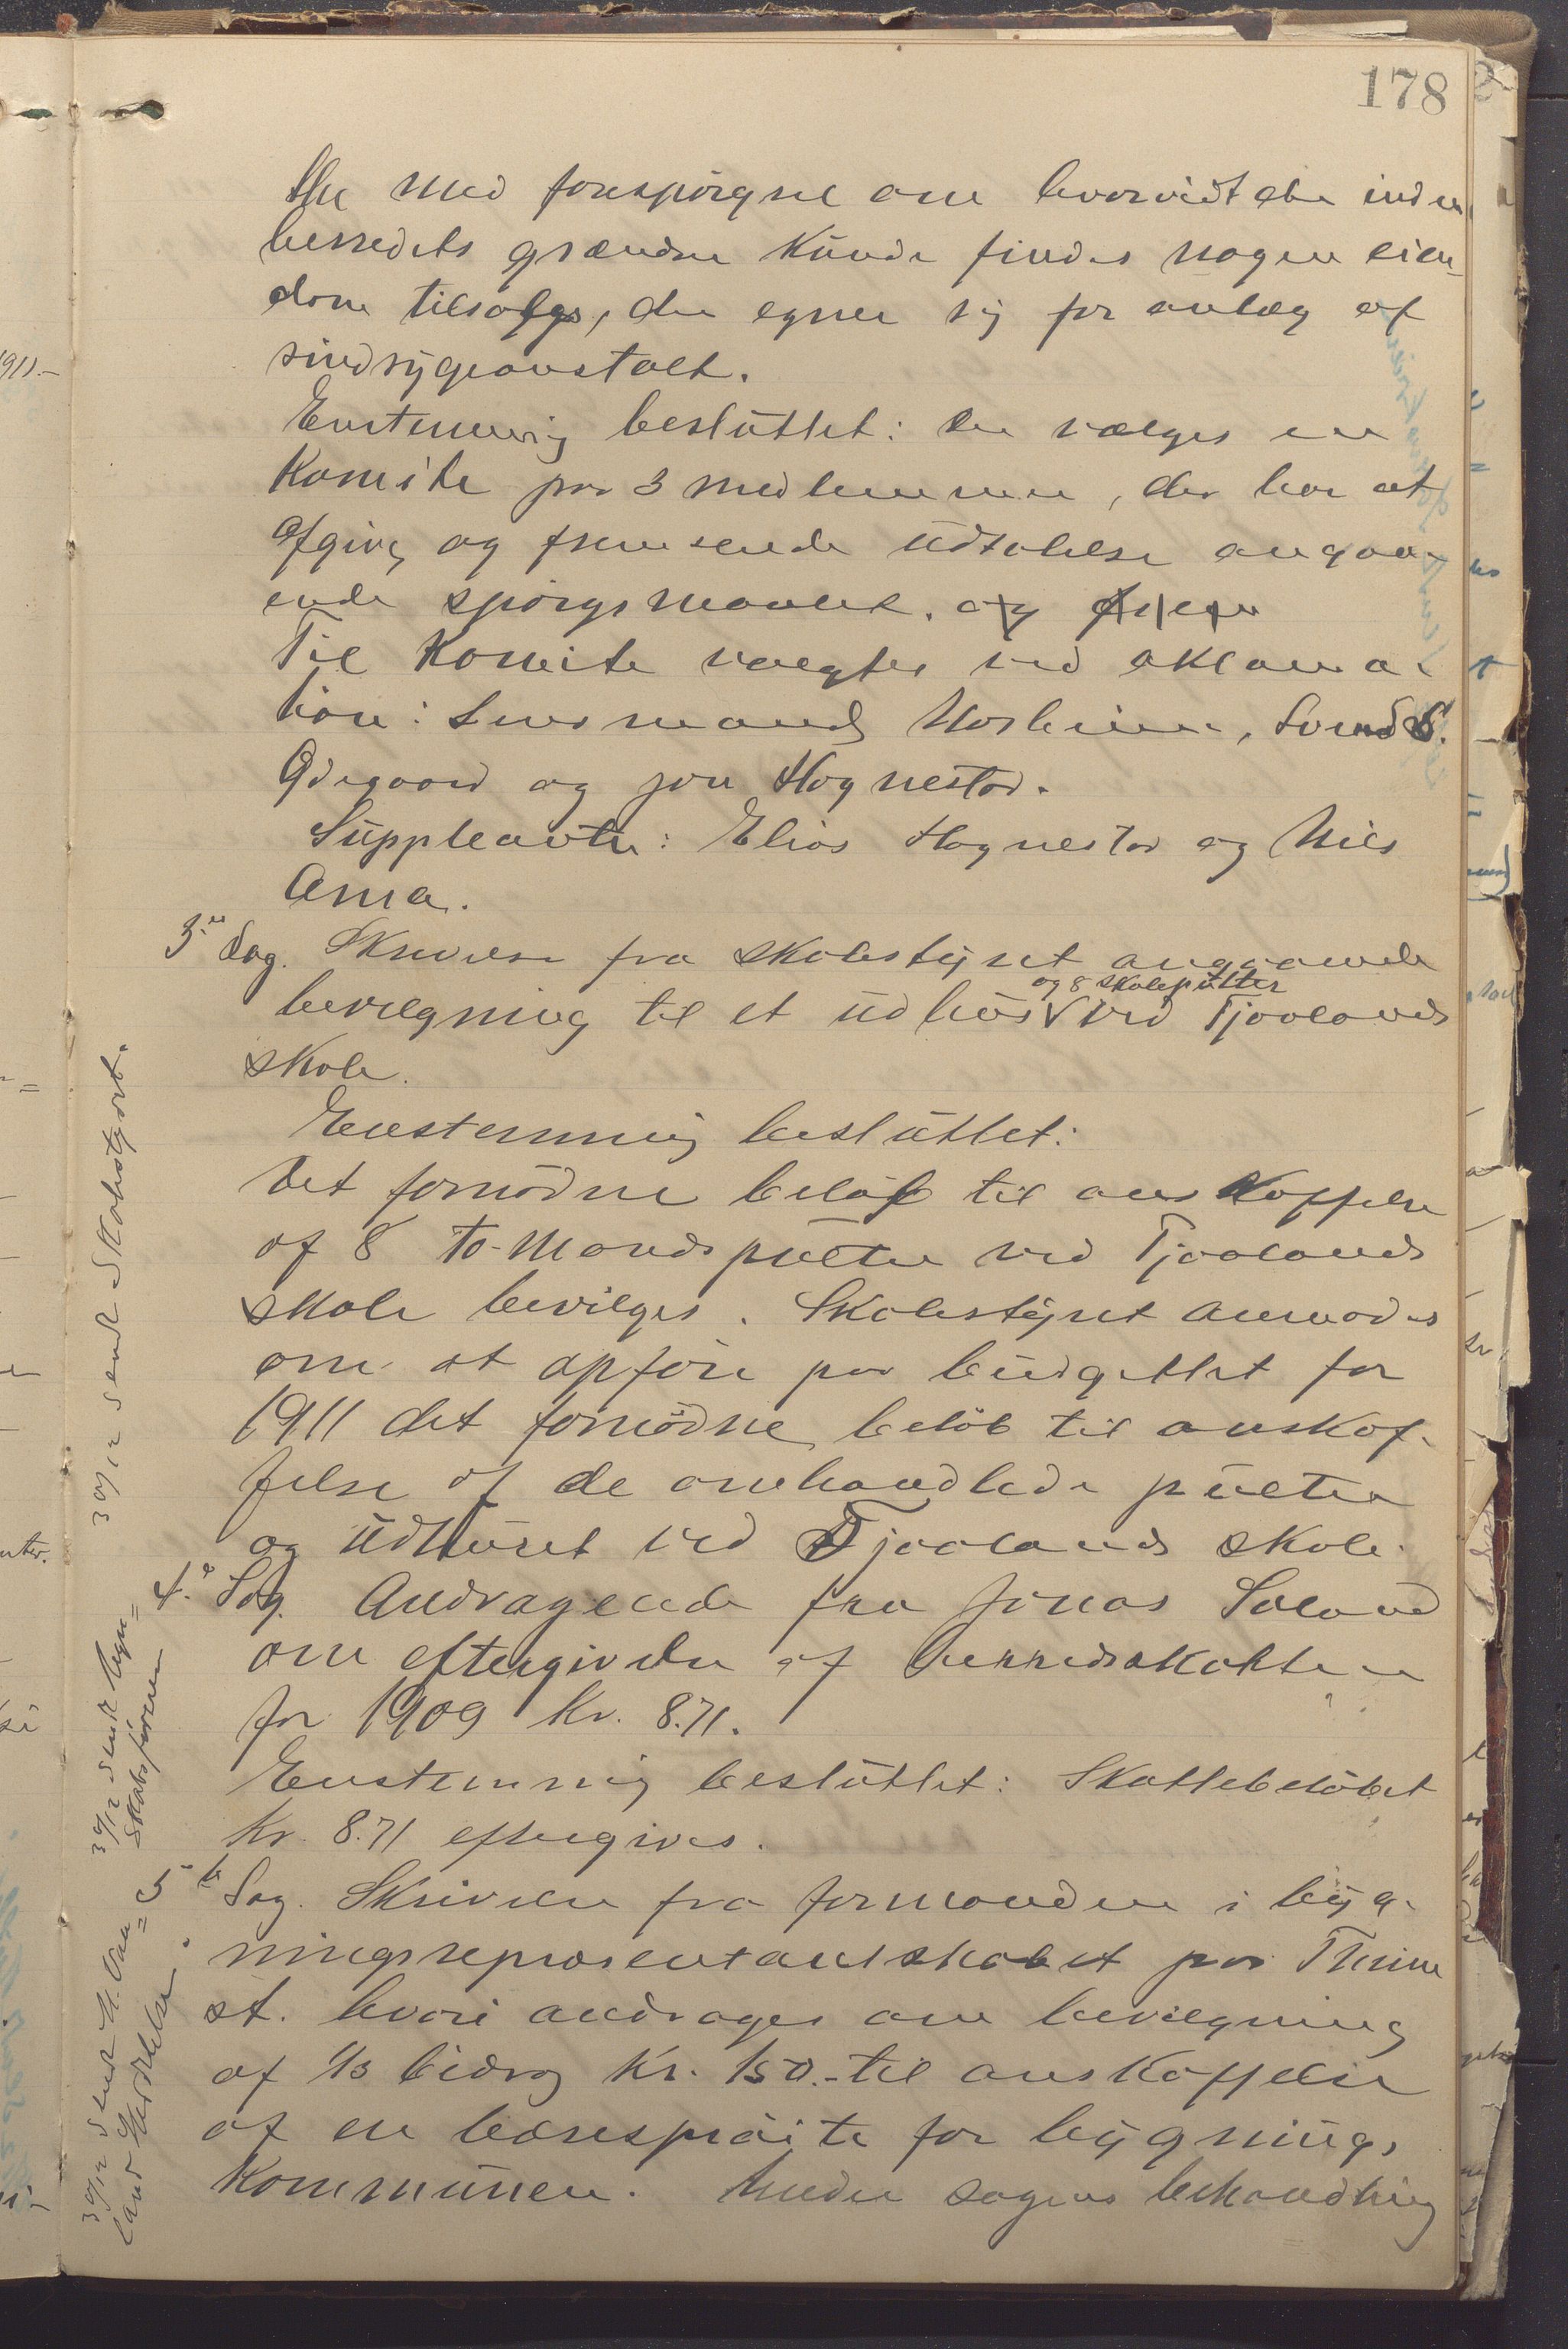 178
med forespørgsel om hvorvidt der inden
herredets grændser kunde findes nogen eien-
dom tilsalgs, der egner sig for anlæg af
sindsygeanstalt.
Enstemmig besluttet: Der vælges en
Komite paa 3 medlemmer, der har at
afgive og fremsende udtalelse angaa-
ende spørgsmaalet. og
Til Komite valgtes ved aklama-
tion: Lensmand Mosheim, Svend S.
Ødegaard og Jon Hognestad.
Suppleanter: Elias Hognestad og Nils
Ama.
3die Sag. Skrivelse fra skolestyret angaaende
og 8 skolepulter
bevilgning til et udhus ved Tjaalands
skole.
Enstemmig besluttet:
Det fornødne beløb til anskaffelse
af 8 to-mandspulter ved Tjaalands
skole bevilges. Skolestyret anmodes
om at opføre paa budgettet for
1911 det fornødne beløb til anskaf-
felse af de omhandlede pulter
og udhuset ved Tjaalands skole.
4de Sag. Andragende fra Jonas Soland
om eftergivelse af herredsskatten
for 1909 kr. 8.71.
Enstemmig besluttet: Skattebeløbet
kr. 8.71 eftergives.
5te Sag. Skrivelse fra formanden i byg-
ningsrepræsentantskabet paa Thime
st. hvori andrages om bevilgning
af 1/3 bidrag kr. 150.- til anskaffelse
af en bæresprøite for bygnings
kommunen. Under sagens behandling
30/12 sendt Skolestyret.
30/12 sendt Regn=
skabsføreren
30/12 sendt